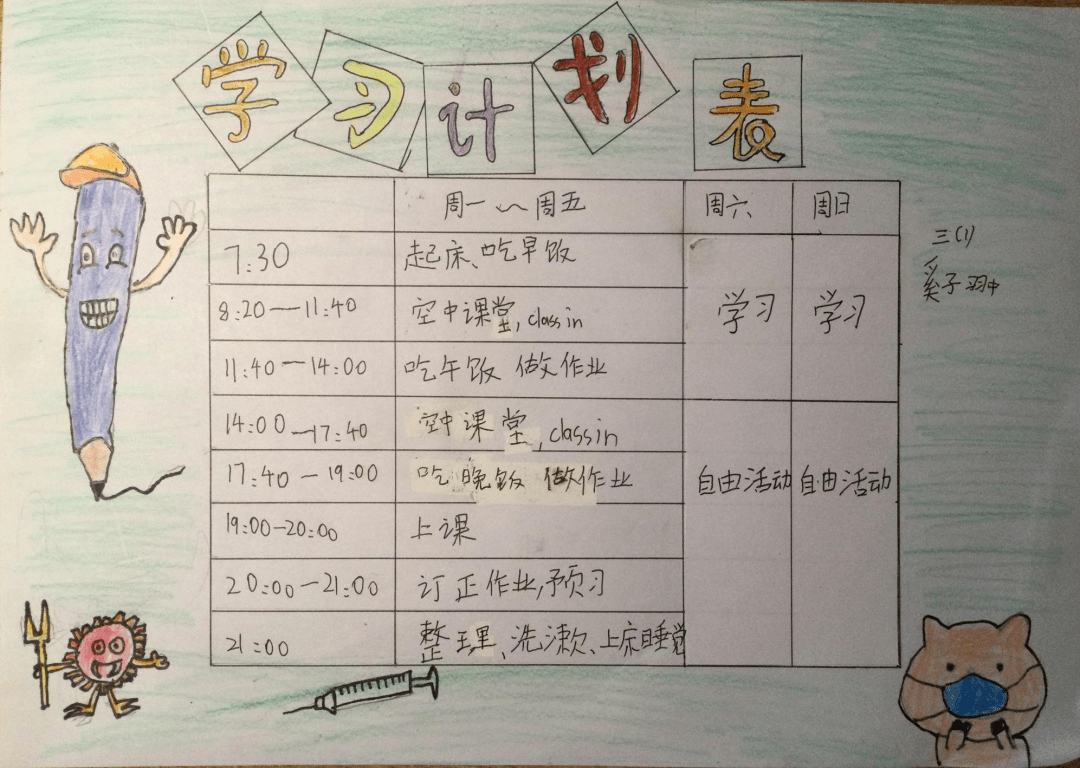 学习计划表
周一～周五 周六 周日
7:30 起床、吃早饭
8:20—11:40 空中课堂,classin 学习 学习
11:40—14:00 吃午饭 做作业
14:00—17:40 空中课堂,classin
17:40—19:00 吃晚饭 做作业 自由活动 自由活动
19:00-20:00 上课
20:00—21:00 订正作业,预习
21:00 整理、洗漱、上床睡觉
三(1)
奚子羽中